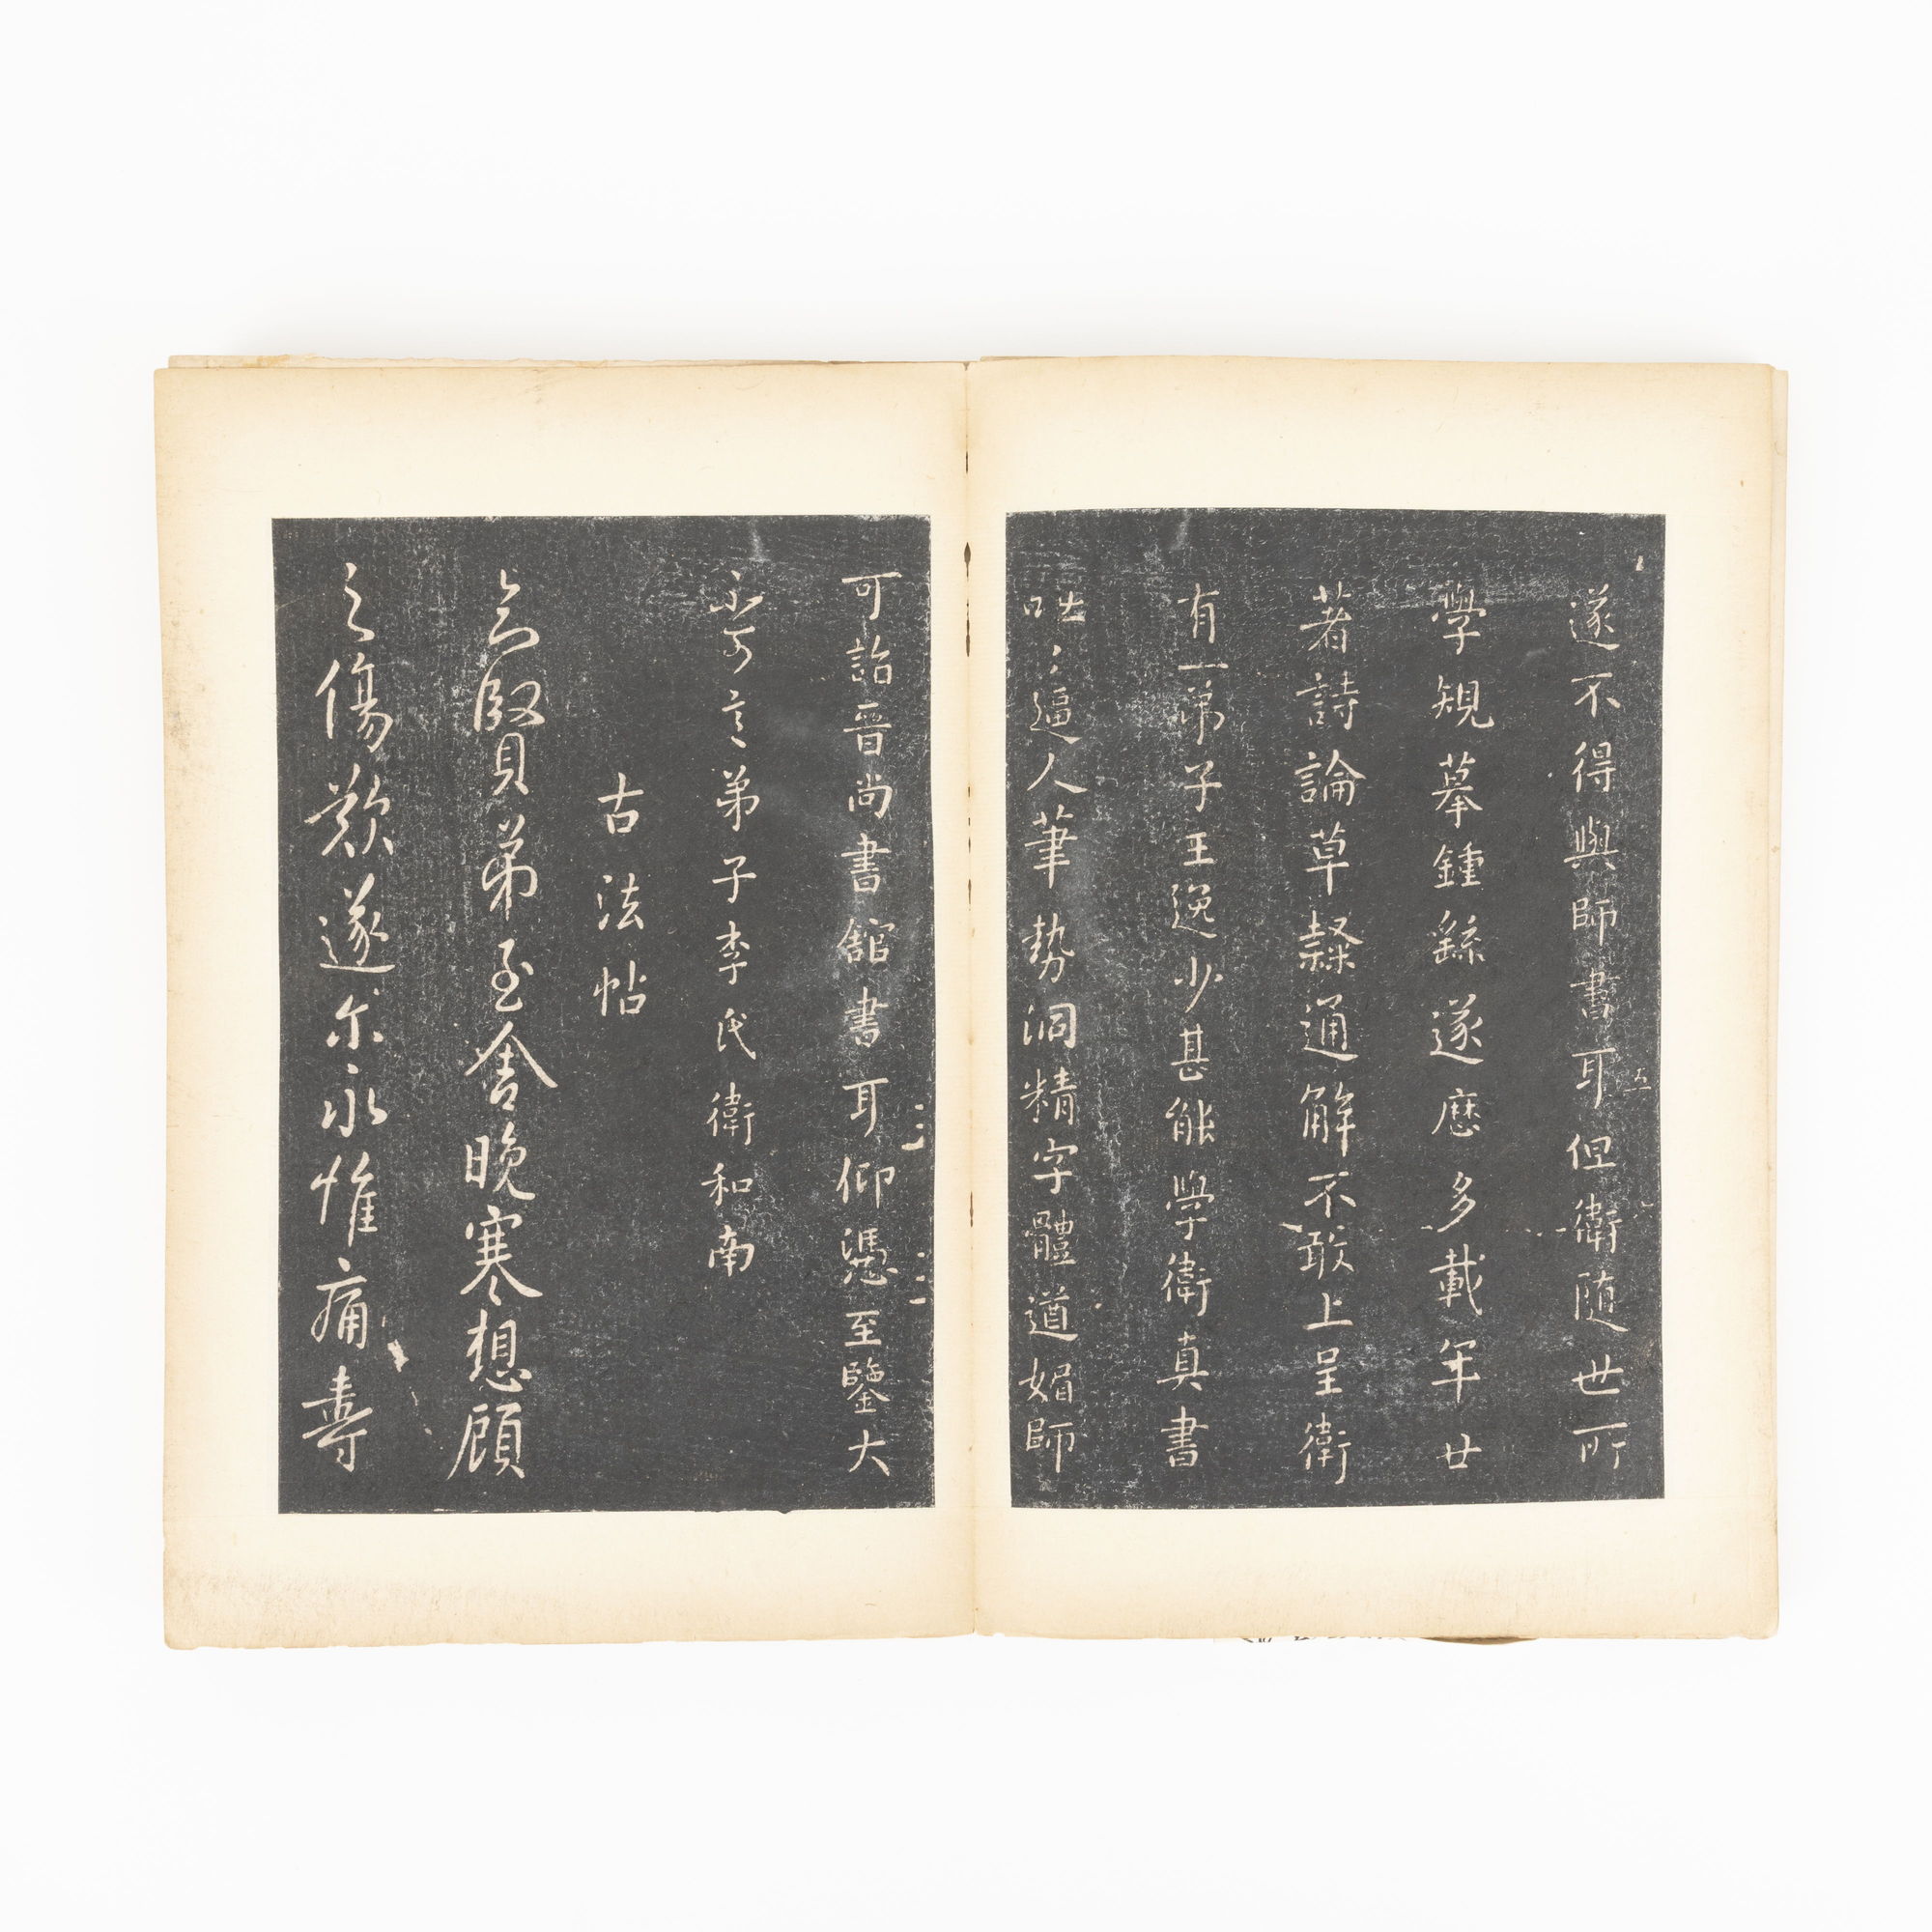 遂不得與師書耳但衛随世所
學規摹鍾繇遂歷多載年廿
著詩論草隸通解不敢上呈衛
有一弟子王逸少甚能學衛真書
咄〻逼人筆勢洞精字體遒媚師
可詣晉尚書館書耳仰憑至鑒大
不可言弟子李氏衛和南
古法帖
賢弟至舍晚寒想顧
之傷歎遂尓永惟痛壽